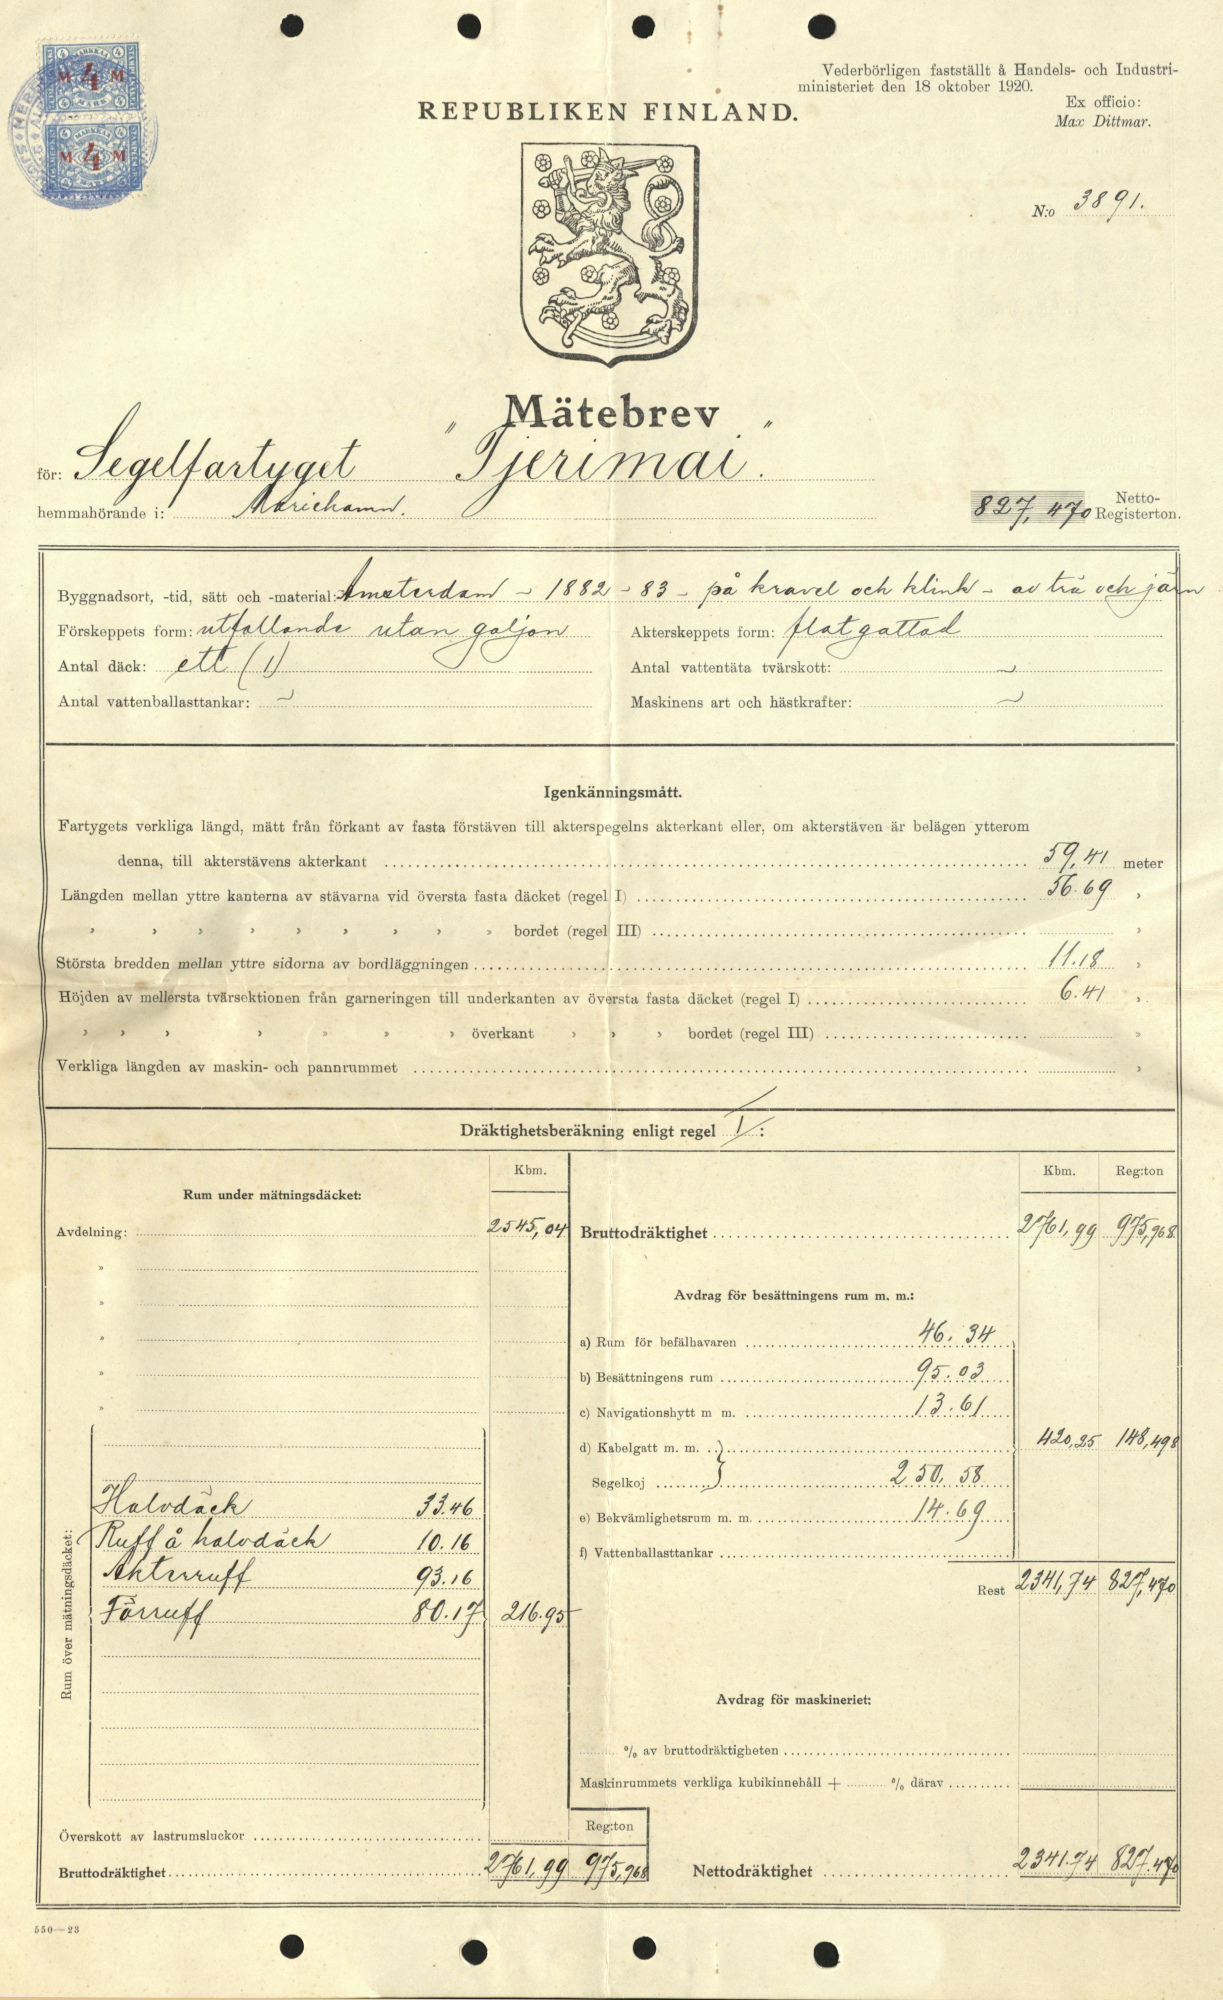 Vederbörligen fastställt å Handels- och Industri-
ministeriet den 18 oktober 1920.
Ex officio:
Max Dittmar.
REPUBLIKEN FINLAND.
4 MARKKAA 4
M 4 M
4 MARK 4
4 MARKKAA 4
M 4 M
4 MARK 4
N:o 3891.
Mätebrev
för: Segelfartyget "Tjerimai".
hemmahörande i: Mariehamn.
827,470 Netto-Registerton.
Byggnadsort, -tid, sätt och -material: Amsterdam - 1882 - 83 - på kravel och klink - av trä och järn
Förskeppets form: utfallande utan galjon Akterskeppets form: flatgattad
Antal däck: ett (1) Antal vattentäta tvärskott: ~
Antal vattenballasttankar: ~ Maskinens art och hästkrafter: ~
Igenkänningsmått.
Fartygets verkliga längd, mätt från förkant av fasta förstäven till akterspegelns akterkant eller, om akterstäven är belägen ytterom
denna, till akterstävens akterkant 59,41 meter
Längden mellan yttre kanterna av stävarna vid översta fasta däcket (regel I) 56.69 "
" " " " " " " " " bordet (regel III) "
Största bredden mellan yttre sidorna av bordläggningen 11.18 "
Höjden av mellersta tvärsektionen från garneringen till underkanten av översta fasta däcket (regel I) 6.41 "
" " " " " " " överkant " " " bordet (regel III) "
Verkliga längden av maskin- och pannrummet "
Dräktighetsberäkning enligt regel I:
Kbm.
Rum under mätningsdäcket:
Avdelning: 2545,04
"
"
"
"
"
Rum över mätningsdäcket:
Halvdäck 33.46
Ruff å halvdäck 10.16
Akterruff 93.16
Förruff 80.17 216.95
Överskott av lastrumsluckor
Reg:ton
Bruttodräktighet 2761,99 975,968
Kbm. Reg:ton
Bruttodräktighet 2761,99 975,968
Avdrag för besättningens rum m. m.:
a) Rum för befälhavaren 46.34
b) Besättningens rum 95.03
c) Navigationshytt m m. 13.61
d) Kabelgatt m. m. 420,25 148,498
Segelkoj 250.58
e) Bekvämlighetsrum m. m. 14.69
f) Vattenballasttankar
Rest 2341,74 827,470
Avdrag för maskineriet:
% av bruttodräktigheten
Maskinrummets verkliga kubikinnehåll + % därav
Nettodräktighet 2341.74 827.470
550—23